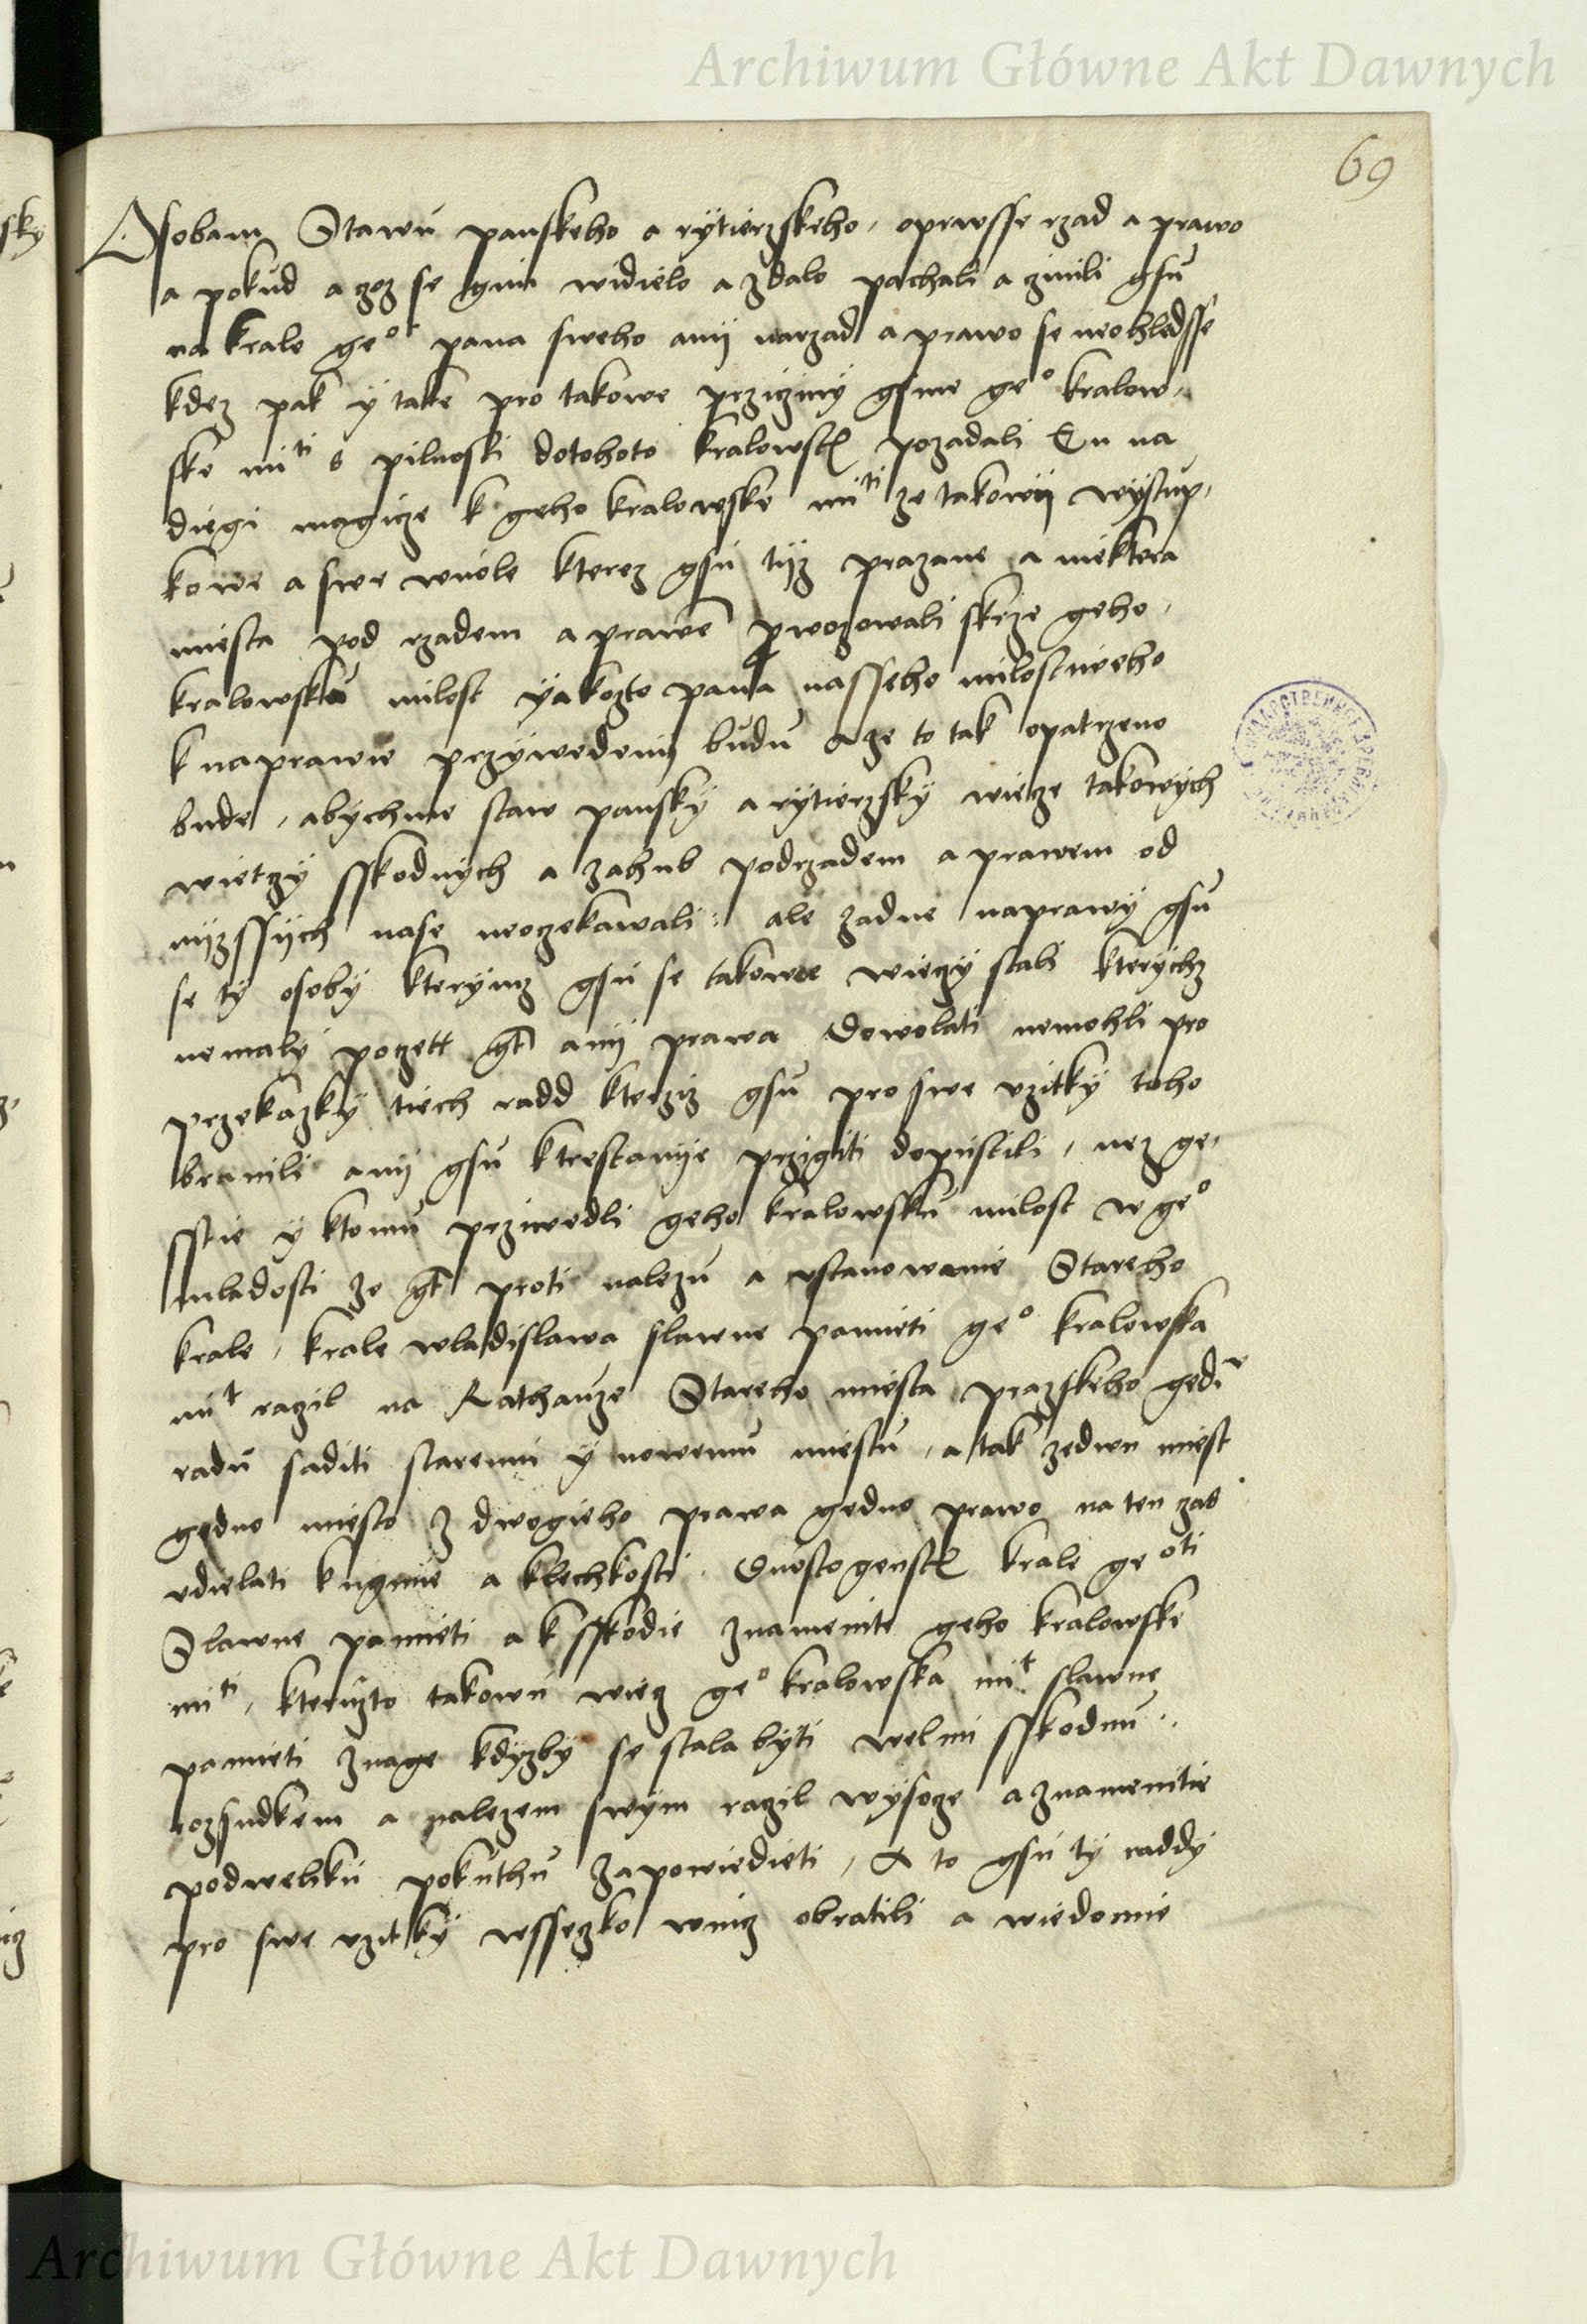 Archiwum Główne Akt Dawnych
69
Osobam Stawu panskeho a rytierzskeho, oprwsse rzad a prawo
a pokud a czoz se gim widielo a zdalo pachali a czinili gsu
na krale geo pana sweho anij narzad a prawo se neohledsse
kdez pak y take pro takowe przicziny gsme geo kralow-
ske miti s pilnosti dotohoto kralowstv pozadali Tu na
diegi magicze k geho kralowske miti ze takowij wystup-
kowe a swe wuole kterez gsu tijz prazane a niektera
miesta pod rzadem a prawem prowozowali skrze geho
kralowsku milost yakozto pana nasseho milostiweho
k naprawie przywedeni budu A ze to tak opatrzeno
bude, abychme staw pansky a rytierzsky wicze takowych
wieczy sskodnych a zahub podrzadem a prawem od
nijzssijch nase neoczekawali: ale zadne naprawy gsu
se ty osoby kterymz gsu se takowe wieczy stali kterychz
nemaly poczett gt anij prawa Dowolati nemohli pro
przekazky tiech radd kterziz gsu pro swe vzitky toho
branili anij gsu ktrestanije przigiti dopustili, nez ge-
sstie y ktomu prziwedli geho kralowsku milost w geo
mladosti ze gt proti nalezu a vstanowenie Stareho
krale, krale wladislawa slawne pamieti geo kralowska
mit raczil na Rathauze Stareho miesta prazskeho gednu
radu saditi staremu y nowemu miestu, a tak zedwu miest
gedno miesto z dwogieho prawa gedno prawo na ten czas
vdielati kugmie a klechkosti Duostogenstv krale geoti
Slawne pamieti a k sskodie znamenite geho kralowske
miti, kteruzto takowu wiecz geo kralowska mit slawne
pamieti znage kdyzby se stala byti welmi sskodnu
rozsudkem a nalezem swym raczil wysocze a znamenitie
podweliku pokuthu zapowiedieti, A to gsu ty raddy
pro swe vzitky wsseczko wnicz obratili a wiedomie
Archiwum Główne Akt Dawnych